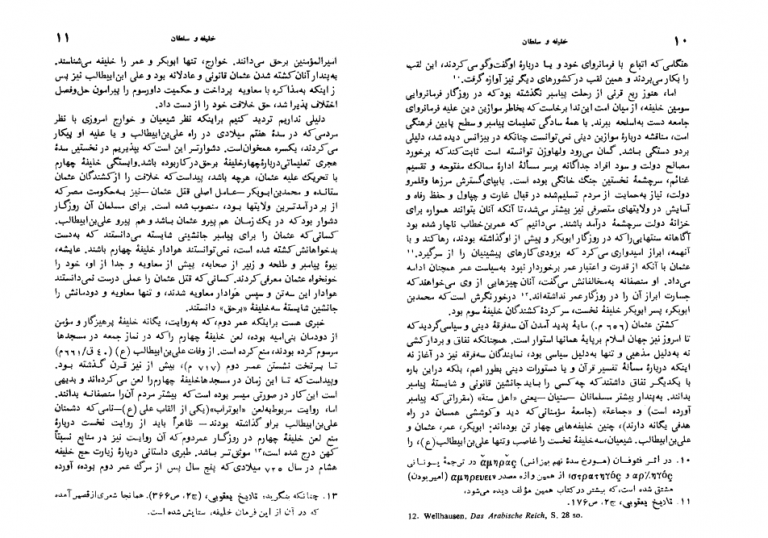 ۱۰
خلیفه و سلطان
هنگامی که اتباع با فرمانروای خود و یا دربارهٔ او گفت‌وگو می‌کردند، این لقب
را بکار می‌بردند و همین لقب در کشورهای دیگر نیز آوازه گرفت.۱۰
اما، هنوز ربع قرنی از رحلت پیامبر نگذشته بود که در روزگار فرمانروایی
سومین خلیفه، از میان امت این ندا برخاست که بخاطر موازین دین علیه فرمانروای
جامعه دست به‌اسلحه ببرند. با همهٔ سادگی تعلیمات پیامبر و سطح پایین فرهنگی
امت، مناقشه دربارهٔ موازین دینی نمی‌توانست چنانکه در بیزانس دیده شد، دلیلی
بر دو دستگی باشد. گمان می‌رود ولهاوزن توانسته است ثابت کند که برخورد
مصالح دولت و سود افراد جداگانه برسر مسألهٔ ادارهٔ ممالک مفتوحه و تقسیم
غنائم، سرچشمهٔ نخستین جنگ خانگی بوده است. با بپای گسترش مرزها و قلمرو
دولت، نیاز به‌حمایت از مردم تسلیم‌شده در قبال غارت و چپاول و حفظ رفاه و
آسایش در ولایتهای متصرفی نیز بیشتر می‌شد، تا آنکه آنان بتوانند همواره برای
خزانهٔ دولت سرچشمهٔ درآمد باشند. می‌دانیم که عمربن‌خطاب ناچار شده بود
آگاهانه سنتهایی را که در روزگار ابوبکر و پیش از او گذاشته بودند، رها کند و با
آنهمه، ابراز امیدواری می‌کرد که بزودی کارهای پیشینیان را از سر گیرد.۱۱
عثمان با آنکه از قدرت و اعتبار عمر برخوردار نبود به‌سیاست عمر همچنان ادامه
می‌داد. او منصفانه به‌مخالفانش می‌گفت، آنان چیزهایی از وی می‌خواهند که
جسارت ابراز آن را در روزگار عمر نداشته‌اند.۱۲ درخور نگرش است که محمدبن
ابوبکر، پسر ابوبکر خلیفهٔ نخست، سرکردهٔ کشندگان خلیفهٔ سوم بود.
کشتن عثمان (۶۵۶ م.) مایهٔ پدید آمدن آن سه‌فرقهٔ دینی و سیاسی گردید که
تا امروز نیز جهان اسلام برپایهٔ همانها استوار است. همچنانکه نفاق و برادرکشی
نه به‌دلیل مذهبی و تنها به‌دلیل سیاسی بود، نمایندگان سه‌فرقه نیز در آغاز نه
اینکه دربارهٔ مسألهٔ تفسیر قرآن و یا دستورات دینی بطور اعم، بلکه در این باره
با یکدیگر نفاق داشتند که چه کسی را باید جانشین قانونی و شایستهٔ پیامبر
بدانند. به‌پندار بیشتر مسلمانان ـ سنیان ـ یعنی «اهل سنة» (مقرراتی که پیامبر
آورده است) و «جماعة» (جامعهٔ مؤمنانی که دید و کوششی همسان در راه
هدفی یگانه دارند)، چنین خلیفه‌هایی چهار تن بوده‌اند: ابوبکر، عمر، عثمان و
علی‌بن‌ابیطالب. شیعیان، سه‌خلیفهٔ نخست را غاصب و تنها علی‌بن‌ابیطالب (ع)، را
۱۰. در اثر فئوفان (مورخ سدهٔ نهم بیزانس) ἀμηρᾶς در ترجمهٔ یونانی
ἀρχηγός و στρατηγός؛ از همین واژه مصدر ἀμηρεύειν (امیر بودن)
مشتق شده است، که بیشتر در کتاب همین مؤلف دیده می‌شود.
۱۱. تاریخ یعقوبی، ج۲، ص۱۷۶.
12. Wellhausen, Das Arabische Reich, S. 28 sq.
خلیفه و سلطان
۱۱
امیرالمؤمنین برحق می‌دانند. خوارج، تنها ابوبکر و عمر را خلیفه می‌شناسند.
به‌پندار آنان کشته شدن عثمان قانونی و عادلانه بود و علی ابن‌ابیطالب نیز پس
از اینکه به‌مذاکره با معاویه پرداخت و حکمیت داورسوم را پیرامون حل‌وفصل
اختلاف پذیرا شد، حق خلافت خود را از دست داد.
دلیلی نداریم تردید کنیم براینکه نظر شیعیان و خوارج امروزی با نظر
مردمی که در سدهٔ هفتم میلادی در راه علی‌بن‌ابیطالب و یا علیه او پیکار
می‌کردند، یکسره همخوان است. دشوارتر این است که بپذیریم در نخستین سدهٔ
هجری تعلیماتی دربارهٔ چهار خلیفهٔ برحق در کار بوده باشد. وابستگی خلیفهٔ چهارم
با تحریک علیه عثمان، هرچه باشد، پیداست که خلافت را از کشندگان عثمان
ستانده و محمدبن‌ابوبکر ـ عامل اصلی قتل عثمان ـ نیز به‌حکومت مصر که
از پردرآمدترین ولایتها بود، منصوب شده است. برای مسلمان آن روزگار
دشوار بود که در یک زمان هم پیرو عثمان باشد و هم پیرو علی‌بن‌ابیطالب.
کسانی که عثمان را برای پیامبر جانشینی شایسته می‌دانستند که به‌دست
بدخواهانش کشته شده است، نمی‌توانستند هوادار خلیفهٔ چهارم باشند. عایشه،
بیوهٔ پیامبر و طلحه و زبیر از صحابه، پیش از معاویه و جدا از او، خود را
خونخواه عثمان معرفی کردند. کسانی که قتل عثمان را عملی درست نمی‌دانستند
هوادار این سه‌تن و سپس هوادار معاویه شدند، و تنها معاویه و دودمانش را
جانشین شایستهٔ سه‌خلیفهٔ «برحق» دانستند.
خبری هست براینکه عمر دوم، که به‌روایت، یگانه خلیفهٔ پرهیزگار و مؤمن
از دودمان بنی‌امیه بوده، لعن خلیفهٔ چهارم را که در نماز جمعه در مسجدها
مرسوم کرده بودند، منع کرده است. از وفات علی‌بن‌ابیطالب (ع) (۴۰ ق/۶۶۱م)
تا برتخت نشستن عمر دوم (۷۱۷ م)، بیش از نیم قرن گذشته بود.
پیداست که تا این زمان در مسجدها خلیفهٔ چهارم را لعن می‌کرده‌اند و بدیهی
است این کار در صورتی میسر بوده است که بیشتر مردم آن را منصفانه بدانند.
اما، روایت مربوط به‌لعن «ابوتراب» (یکی از القاب علی (ع) ـ نامی که دشمنان
علی‌بن‌ابیطالب براو گذاشته بودند ـ ظاهراً باید از روایت نخست دربارهٔ
منع لعن خلیفهٔ چهارم در روزگار عمر دوم که آن روایت نیز در منابع نسبتاً
کهن درج شده است،۱۳ موثق‌تر باشد. طبری داستانی دربارهٔ زیارت حج خلیفه
هشام در سال ۷۲۵ میلادی که پنج سال پس از مرگ عمر دوم بوده، آورده
۱۳. چنانکه بنگرید: تاریخ یعقوبی، (ج۲، ص۳۶۶). همانجا شعری از قصیر آمده
که در آن از این فرمان خلیفه، ستایش شده است.